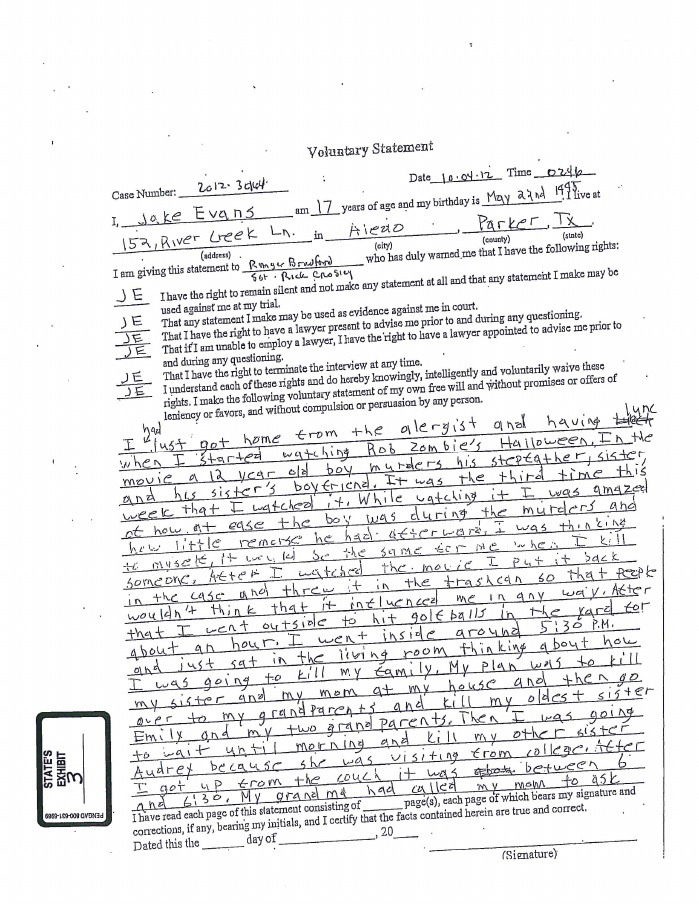 Voluntary Statement
Date 10.04.12 Time 0246
Case Number: 2012-
I, Jake Evans am 17 years of age and my birthday is May 22nd 1995. I live at
152, River Creek Ln. in Aledo, Parker, Tx.
(address) (city) (county) (state)
I am giving this statement to Ranger Bradford who has duly warned me that I have the following rights:
Sgt. Rick Crosley
JE I have the right to remain silent and not make any statement at all and that any statement I make may be
used against me at my trial.
JE That any statement I make may be used as evidence against me in court.
JE That I have the right to have a lawyer present to advise me prior to and during any questioning.
JE That if I am unable to employ a lawyer, I have the right to have a lawyer appointed to advise me prior to
and during any questioning.
JE That I have the right to terminate the interview at any time.
JE I understand each of these rights and do hereby knowingly, intelligently and voluntarily waive these
rights. I make the following voluntary statement of my own free will and without promises or offers of
leniency or favors, and without compulsion or persuasion by any person.
I had just got home from the alergist and having lunc
when I started watching Rob Zombie's Halloween. In the
movie a 12 year old boy murders his stepfather, sister,
and his sister's boyfriend. It was the third time this
week that I watched it. While watching it I was amazed
at how at ease the boy was during the murders and
how little remorse he had afterward. I was thinking
to myself, it would be the same for me when I kill
someone. After I watched the movie I put it back
in the case and threw it in the trashcan so that people
wouldn't think that it influenced me in any way. After
that I went outside to hit golf balls in the yard for
about an hour. I went inside around 5:30 P.M.
and just sat in the living room thinking about how
I was going to kill my family. My plan was to kill
my sister and my mom at my house and then go
over to my grandparents and kill my oldest sister
Emily and my two grandparents. Then I was going
to wait until morning and kill my other sister
Audrey because she was visiting from college. After
I got up from the couch it was between 6
and 6:30. My grandma had called my mom to ask
I have read each page of this statement consisting of ______ page(s), each page of which bears my signature and
corrections, if any, bearing my initials, and I certify that the facts contained herein are true and correct.
Dated this the ______ day of ______________, 20____
(Signature)
STATE'S
EXHIBIT
3
PENGAD 800-631-6989